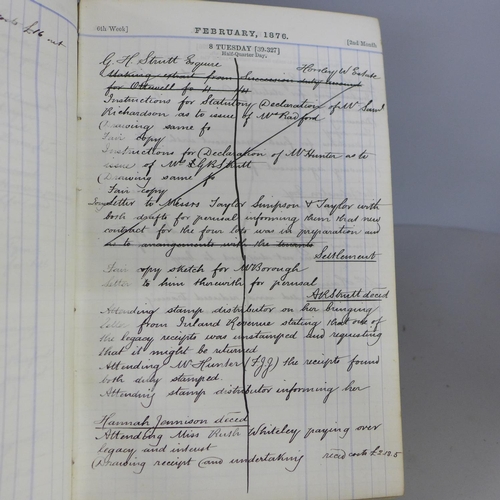 6th Week]
FEBRUARY, 1876.
[2nd Month
8 TUESDAY [39-327]
Half-Quarter Day.
G H Strutt Esquire
Horsley W Estate
Making extract from Succession duty
for Ottewell fo 4
Instructions for Statutory Declaration of Mr Saml
Richardson as to issue of Mrs Radford
Drawing same fo
Fair copy
Instructions for Declaration of Mr Hunter as to
issue of Mr Strutt
Drawing same fo
Fair copy
Letter to Messrs Taylor Simpson & Taylor with
both drafts for perusal informing them that new
contract for the four lots was in preparation and
as to arrangements with the tenants
Settlement
Fair copy sketch for Mr Borough
Letter to him therewith for perusal
Strutt deced
Attending stamp distributor on her bringing
letter from Inland Revenue stating that one of
the legacy receipts was unstamped and requesting
that it might be returned
Attending Mr Hunter (FJJ) the receipts found
both duly stamped
Attending stamp distributor informing her
Hannah Jennison deced
Attending Miss Ruth Whiteley paying over
legacy and interest
Drawing receipt and undertaking recd costs £2.19.5